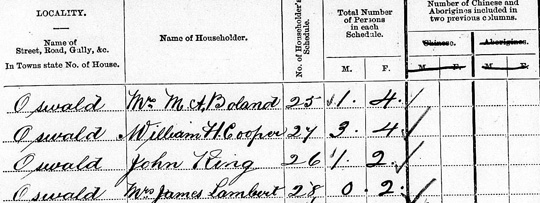 LOCALITY.
Name of
Street, Road, Gully, &c.
In Towns state No. of House.
Name of Householder.
No. of Householder's
Schedule.
Total Number
of Persons
in each
Schedule.
M. F.
Number of Chinese and
Aborigines included in
two previous columns.
Chinese. Aborigines.
M. F. M. F.
Oswald Mrs M A Boland 25 1. 4.
Oswald William H Cooper 27 3. 4
Oswald John King 26 1. 2.
Oswald Mrs James Lambert 28 0. 2.